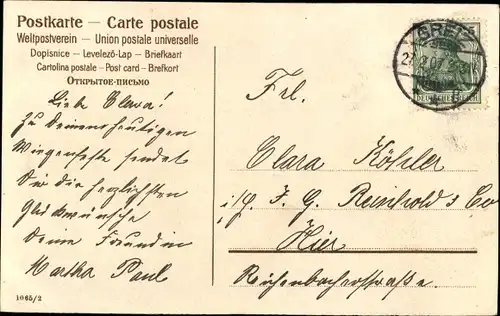 Postkarte — Carte postale
Weltpostverein — Union postale universelle
Dopisnice — Levelező-Lap — Briefkaart
Cartolina postale — Post card — Brefkort
Открытое письмо
Liebe Clara!
Zu Deinem heutigen
Wiegenfeste sendet
Dir die herzlichsten
Glückwünsche
Deine Freundin
Martha Paul
1065/2
GREIZ
DEUTSCHES REICH
Frl.
Clara Köhler
i/H. F. G. Reinhold & Co
Hier
Reichenbacherstraße.